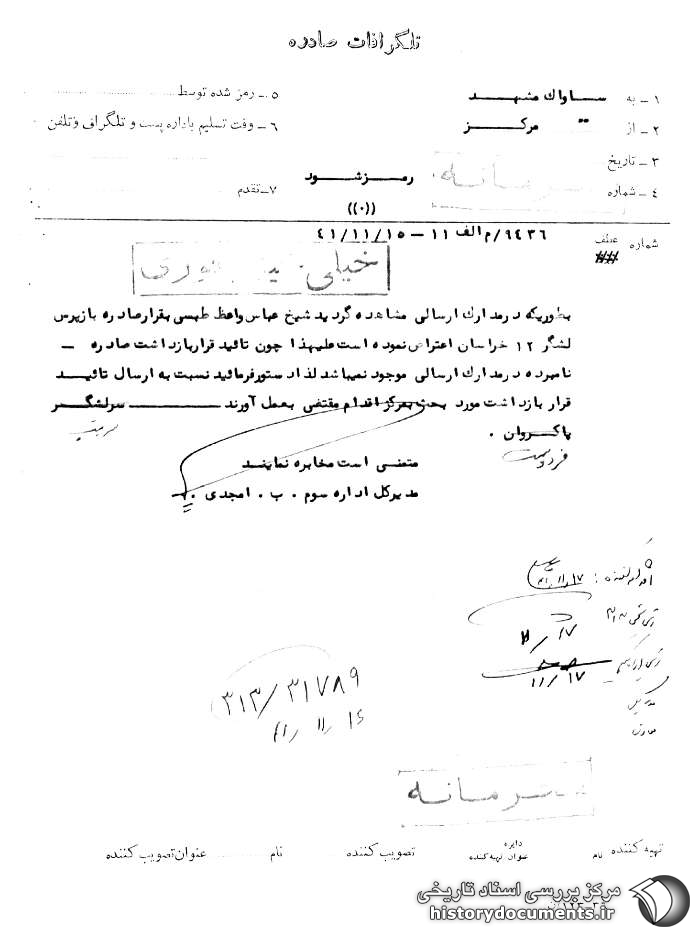 تلگرافات صادره
۱ - به ساواك مشهد
۵ - رمز شده توسط
۲ - از مرکز
۶ - وقت تسلیم باداره پست و تلگراف وتلفن
۳ - تاریخ
۴ - شماره
محرمانه
رمزشود
۷ - تقدم
((۰))
شماره عطف ۹۴۳۶/م الف ۱۱ - ۴۱/۱۱/۱۵
خیلی خیلی فوری
بطوریکه درمدارك ارسالی مشاهده گردید شیخ عباس واعظ طبسی بقرارصادره بازپرس
لشگر ۱۲ خراسان اعتراض نموده است علیهذا چون تائید قراربازداشت صادره -
نامبرده درمدارك ارسالی موجود نمیباشد لذا دستورفرمائید نسبت به ارسال تائید
قرار بازداشت مورد بحث بمرکز اقدام مقتضی بعمل آورند سرلشگر
پاکروان .
متمنی است مخابره نمایند
مدیرکل اداره سوم . ب . امجدی
اقدام کننده : ۴۱/۱۱/۱۷
۱۱/۱۷
۱۱/۱۷
مدیر کل
معاون
۳۱۳/۳۱۷۸۹
۴۱/۱۱/۱۶
محرمانه
تهیه کننده نام دایره عنوان تهیه کننده تصویب کننده نام عنوان تصویب کننده
مرکز بررسی اسناد تاریخی
historydocuments.ir